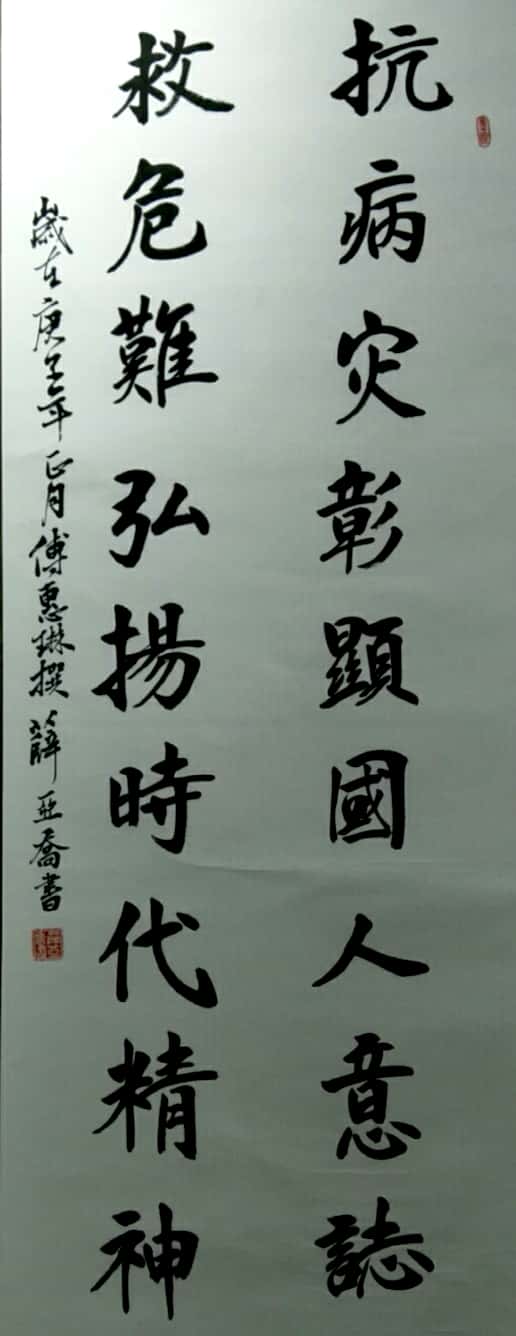 抗病灾彰顯國人意誌
救危難弘揚時代精神
歲在庚子年正月傅惠琳撰薛亞喬書